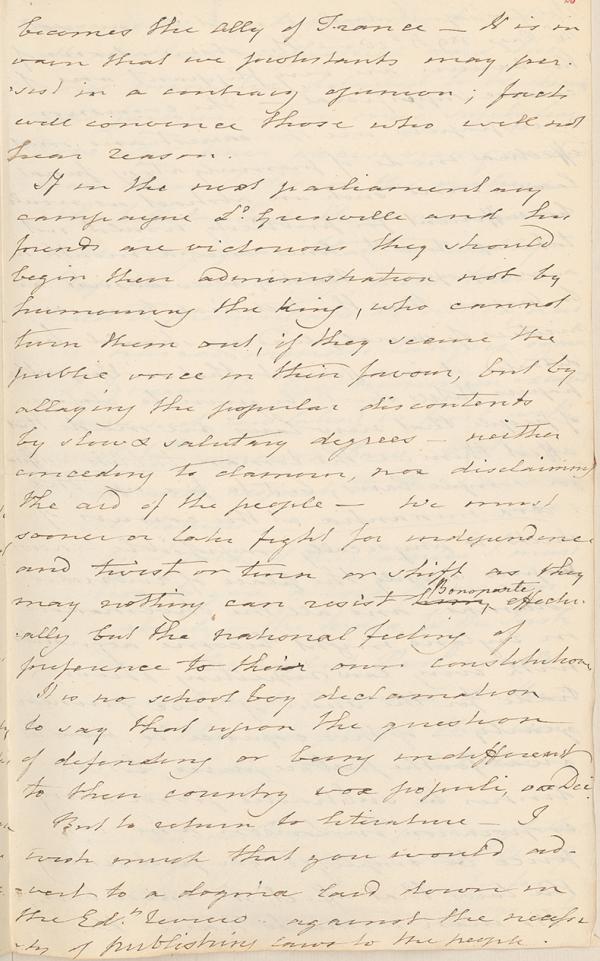 becomes the ally of France — It is in
vain that we protestants may per-
sist in a contrary opinion; facts
will convince those who will not
hear reason.
If in the next parliamentary
campagne Ld. Grenville and his
friends are victorious they should
begin their administration not by
humouring the King, who cannot
turn them out, if they secure the
public voice in their favour, but by
allaying the popular discontents
by slow & salutary degrees — neither
conceding to clamour, nor disclaiming
the aid of the people — we must
sooner or later fight for independence
and twist or turn or shift as they
Bonaparte
may nothing can resist effectu-
ally but the national feeling of
preference to their own constitution
It is no school boy declamation
to say that upon the question
of defending or being indifferent
to their country vox populi, vox Dei.
But to return to literature — I
wish much that you would ad-
vert to a dogma laid down in
the Edth. Review against the necessi
ty of publishing laws to the people.